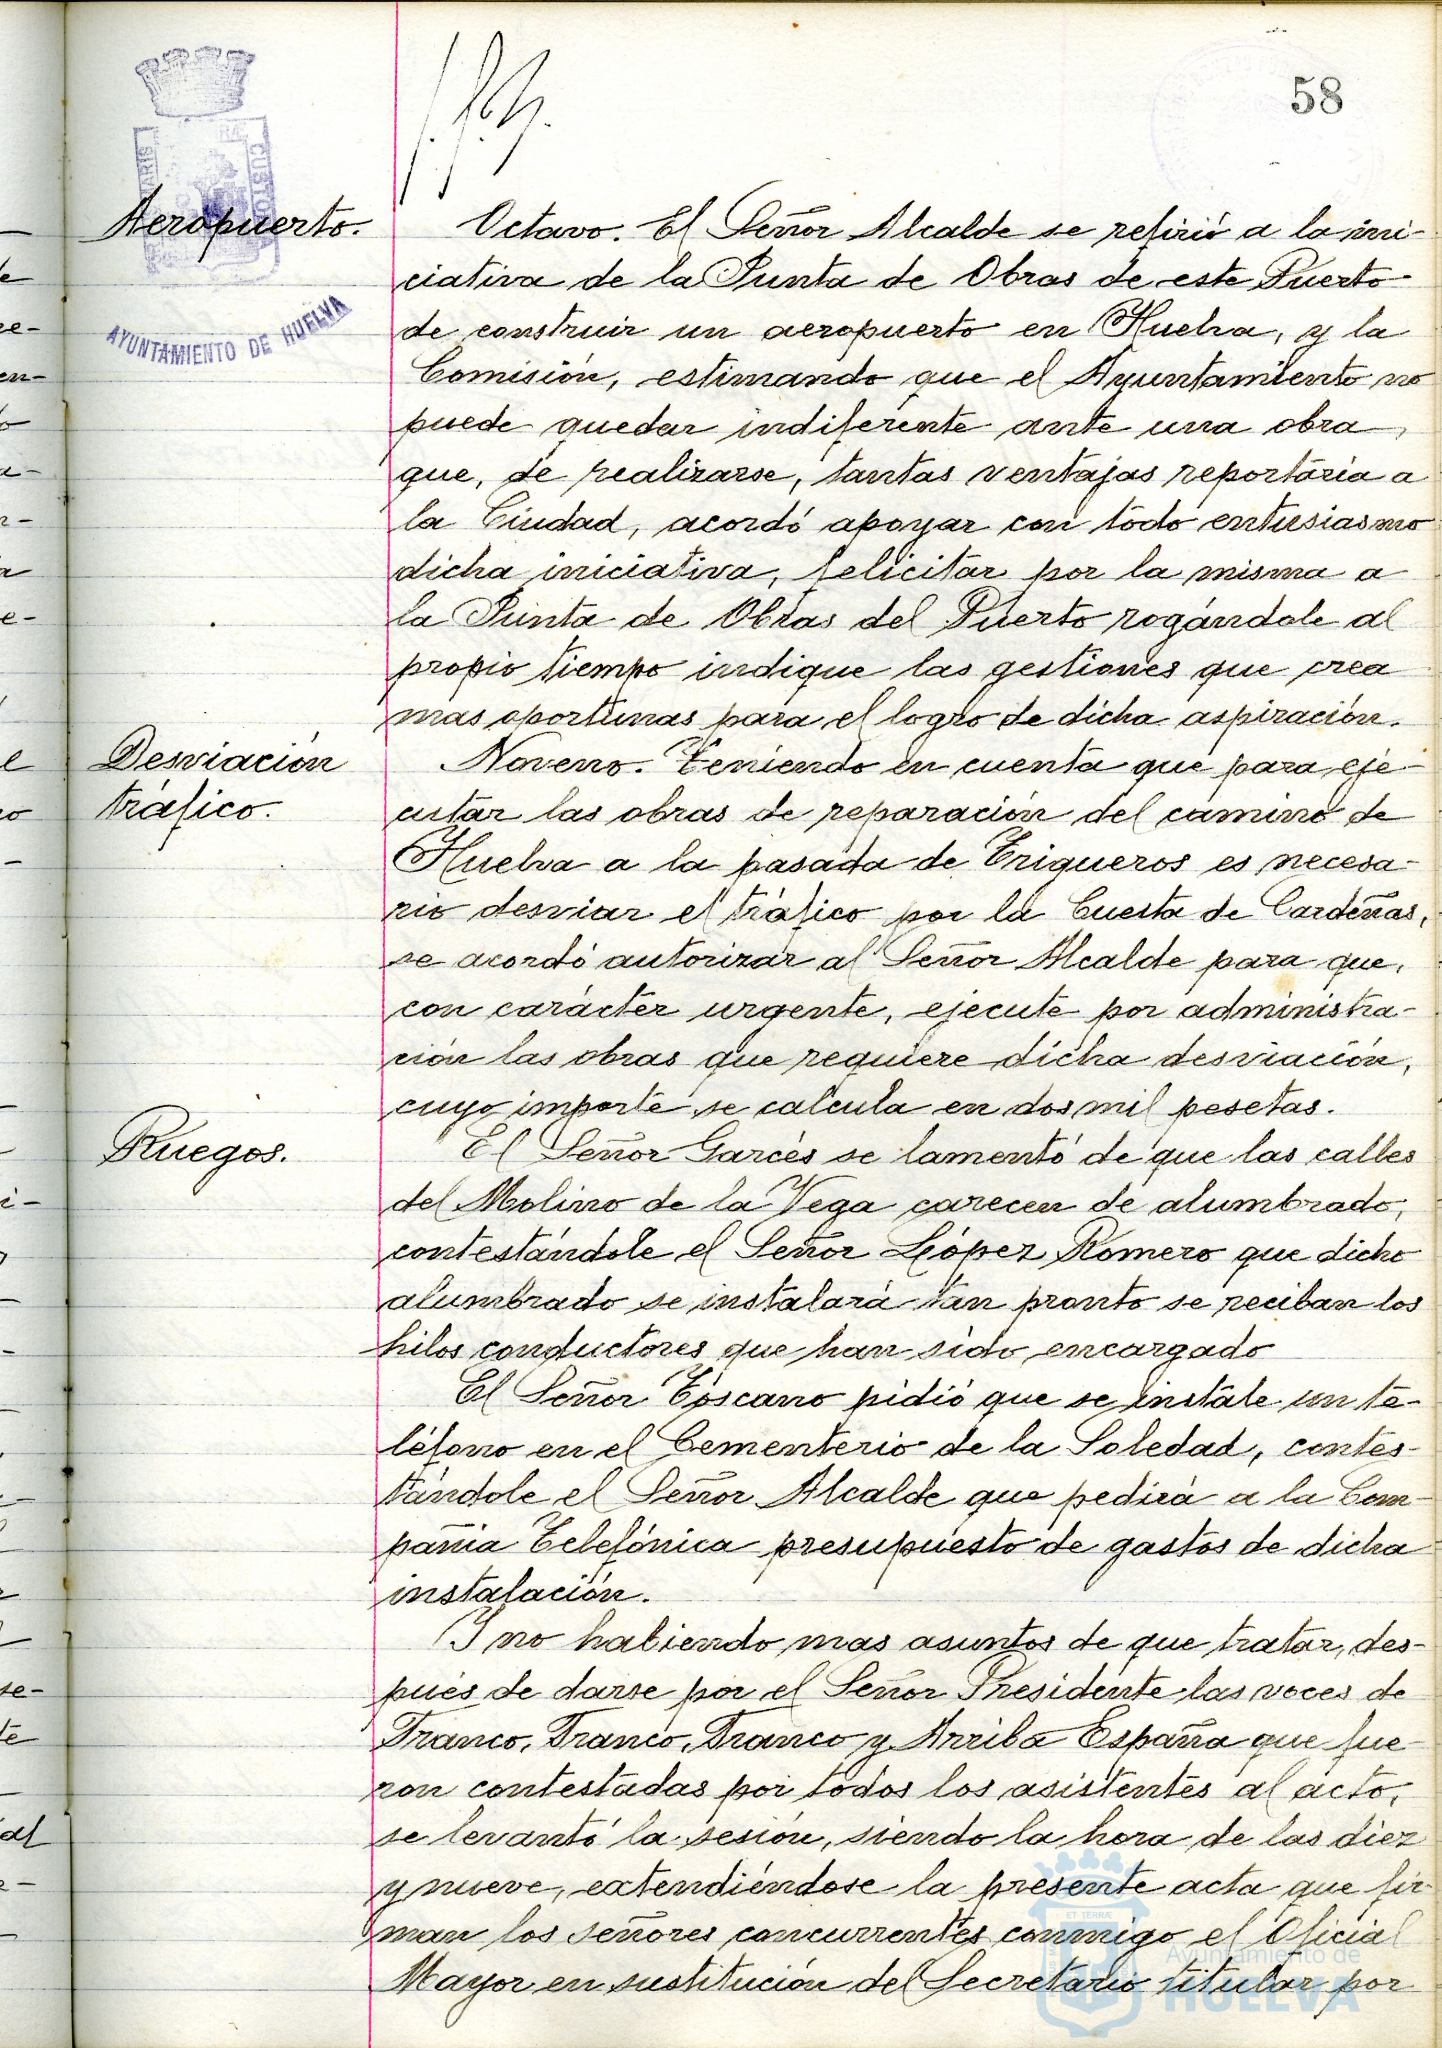 58
Aeropuerto.
Octavo. El Señor Alcalde se refirió a la ini-
ciativa de la Junta de Obras de este Puerto
de construir un aeropuerto en Huelva, y la
Comisión, estimando que el Ayuntamiento no
puede quedar indiferente ante una obra,
que, de realizarse, tantas ventajas reportaria a
la Ciudad, acordó apoyar con todo entusiasmo
dicha iniciativa, felicitar por la misma a
la Junta de Obras del Puerto rogándole al
propio tiempo indique las gestiones que crea
mas oportunas para el logro de dicha aspiración.
Desviación
tráfico.
Noveno. Teniendo en cuenta que para eje-
cutar las obras de reparación del camino de
Huelva a la pasada de Trigueros es necesa-
rio desviar el tráfico por la Cuesta de Cardeñas,
se acordó autorizar al Señor Alcalde para que,
con carácter urgente, ejecute por administra-
ción las obras que requiere dicha desviación,
cuyo importe se calcula en dos mil pesetas.
Ruegos.
El Señor Garcés se lamentó de que las calles
del Molino de la Vega carecen de alumbrado,
contestándole el Señor López Romero que dicho
alumbrado se instalará tan pronto se reciban los
hilos conductores que han sido encargado
El Señor Toscano pidió que se instale un te-
léfono en el Cementerio de la Soledad, contes-
tándole el Señor Alcalde que pedirá a la Com-
pañia Telefónica presupuesto de gastos de dicha
instalación.
Y no habiendo mas asuntos de que tratar, des-
pués de darse por el Señor Presidente las voces de
Franco, Franco, Franco y Arriba España que fue-
ron contestadas por todos los asistentes al acto,
se levantó la sesión, siendo la hora de las diez
y nueve, extendiéndose la presente acta que fir-
man los señores concurrentes conmigo el Oficial
Mayor en sustitución del Secretario titular por
AYUNTAMIENTO DE HUELVA
Ayuntamiento de
HUELVA